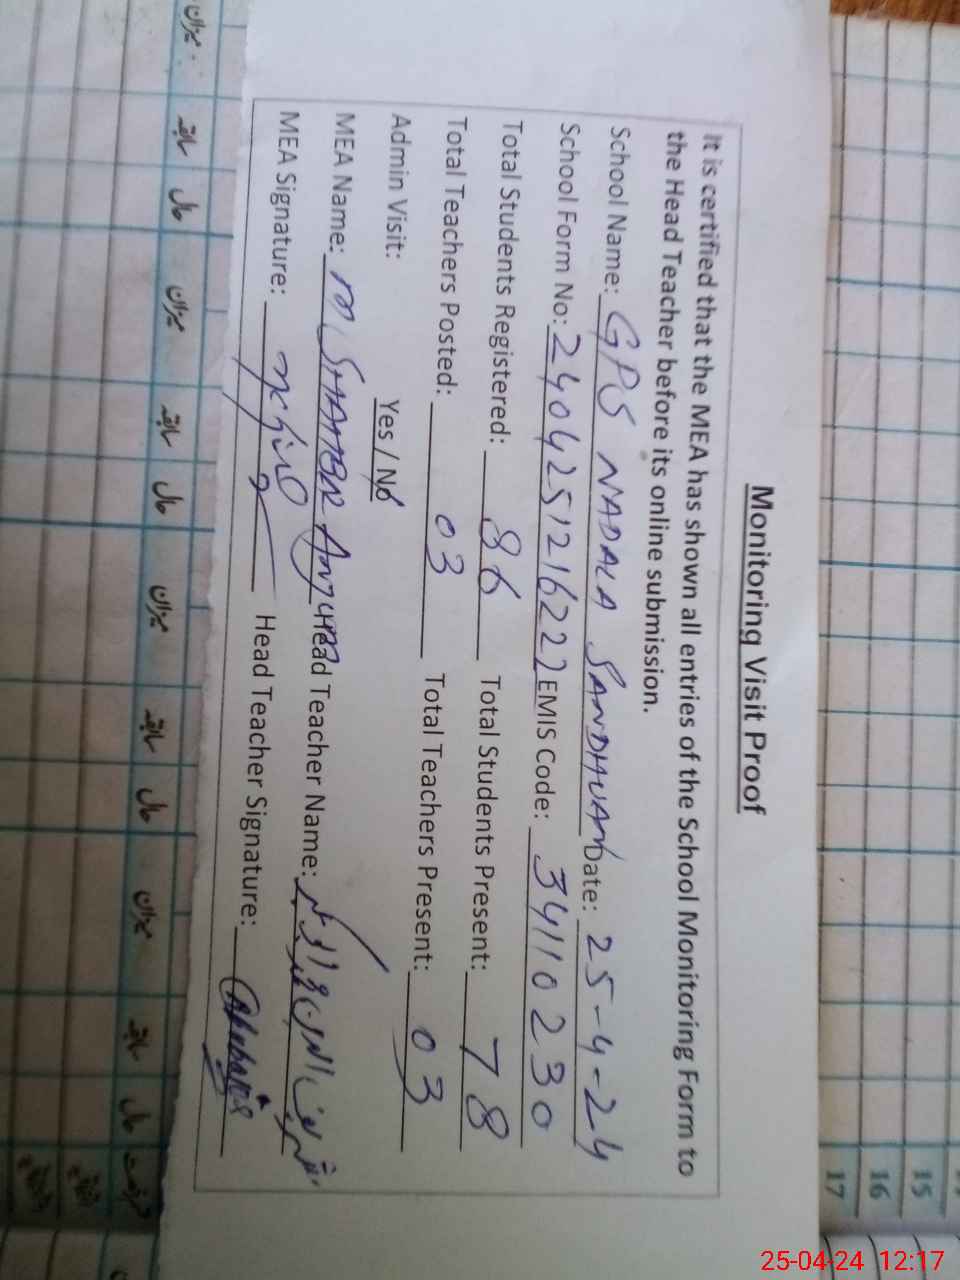 Monitoring Visit Proof
It is certified that the MEA has shown all entries of the School Monitoring Form to
the Head Teacher before its online submission.
School Name: GPS NADALA SANDHUAN Date: 25-4-24
School Form No: 2404251216222 EMIS Code: 34110230
Total Students Registered: 86 Total Students Present: 78
Total Teachers Posted: 03 Total Teachers Present: 03
Admin Visit: Yes / No
MEA Name: M. Head Teacher Name:
MEA Signature: Head Teacher Signature:
15
16
17
میزان سابقہ حال میزان سابقہ حال میزان سابقہ حال میزان سابقہ حال
25-04-24 12:17